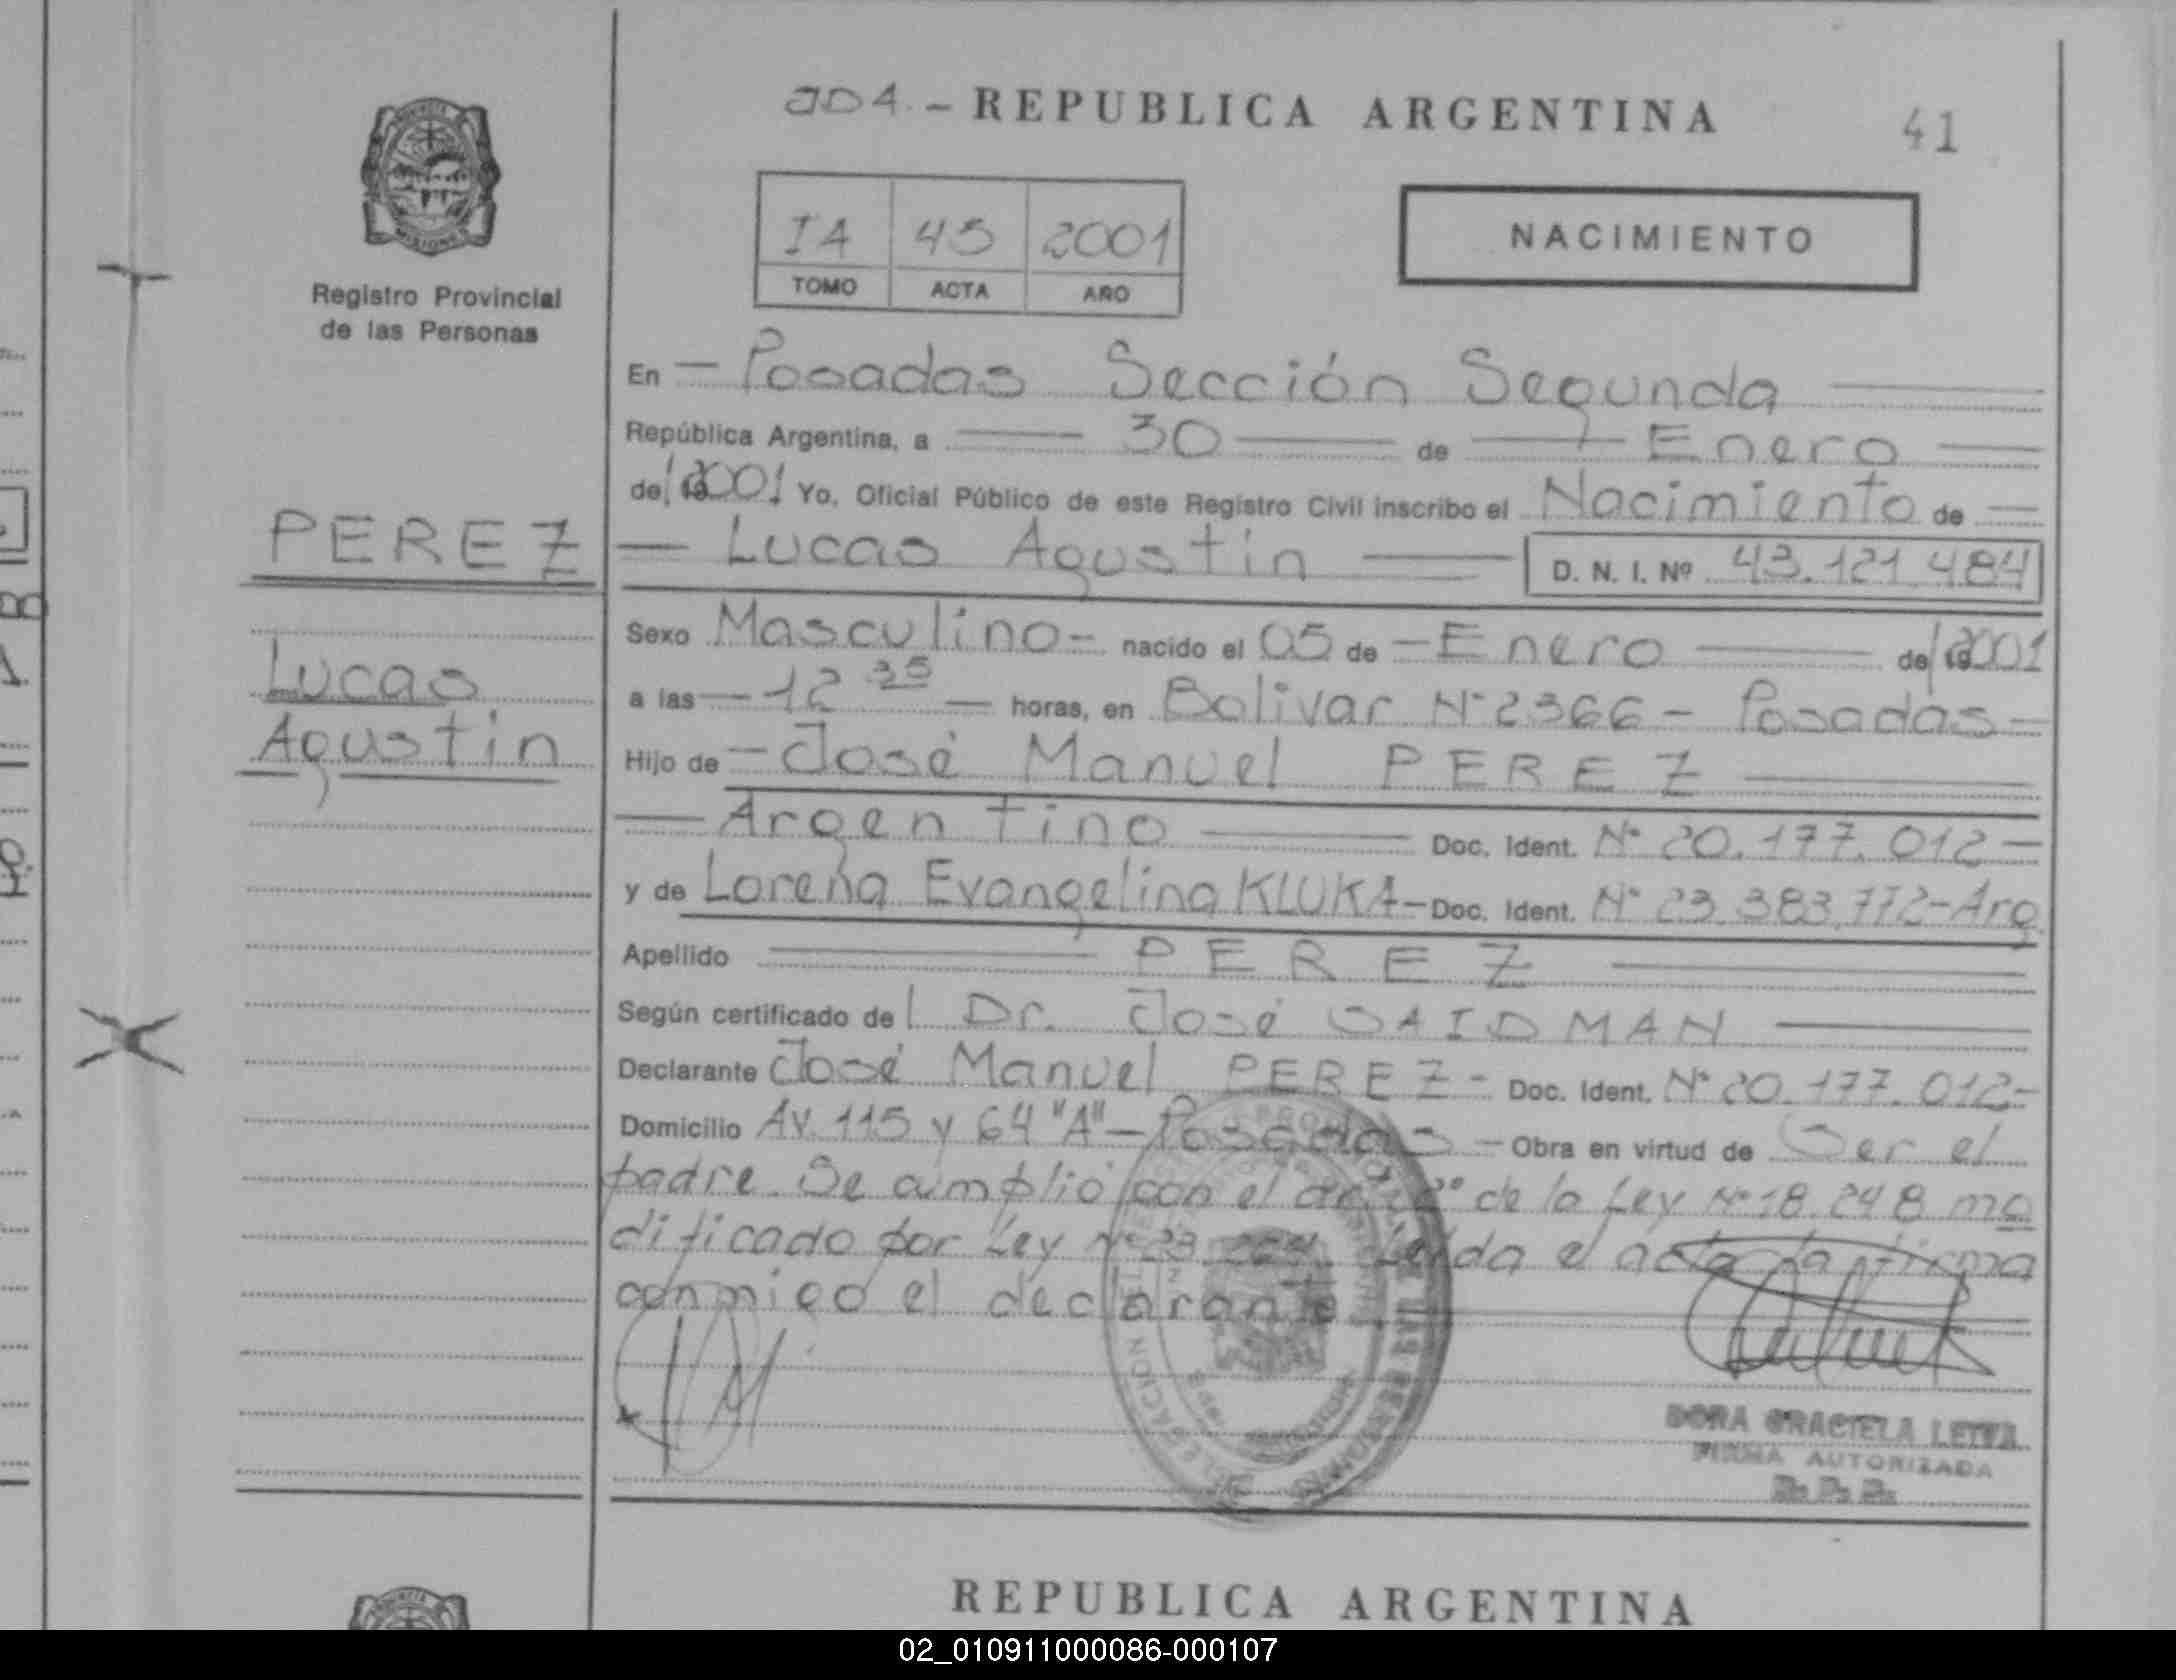 JD4.- REPUBLICA ARGENTINA
41
IA 45 2001
TOMO ACTA AÑO
NACIMIENTO
PROVINCIA
MISIONES
Registro Provincial
de las Personas
En - Posadas Sección Segunda
República Argentina, a 30 de Enero
de 2001 Yo, Oficial Público de este Registro Civil inscribo el Nacimiento de
PEREZ
Lucas Agustin D. N. I. Nº 43.121.484
Sexo Masculino - nacido el 05 de - Enero de 2001
Lucas
Agustin
a las - 12 35 - horas, en Bolivar Nº 2366 - Posadas -
Hijo de - José Manuel PEREZ
- Argentino Doc. Ident. Nº 20.177.012 -
y de Lorena Evangelina KLUKA - Doc. Ident. Nº 23.383.772 - Arg.
Apellido PEREZ
Según certificado de l Dr. José SAIDMAN
Declarante José Manuel PEREZ - Doc. Ident. Nº 20.177.012 -
Domicilio Av. 115 y 64 "A" - Posadas - Obra en virtud de Ser el
padre. Se cumplió con el art. 2º de la Ley Nº 18.248 mo
dificado por Ley Nº Leída el acta la firma
conmigo el declarante
DORA GRACIELA LEIVA
FIRMA AUTORIZADA
R. P. P.
REPUBLICA ARGENTINA
02_010911000086-000107